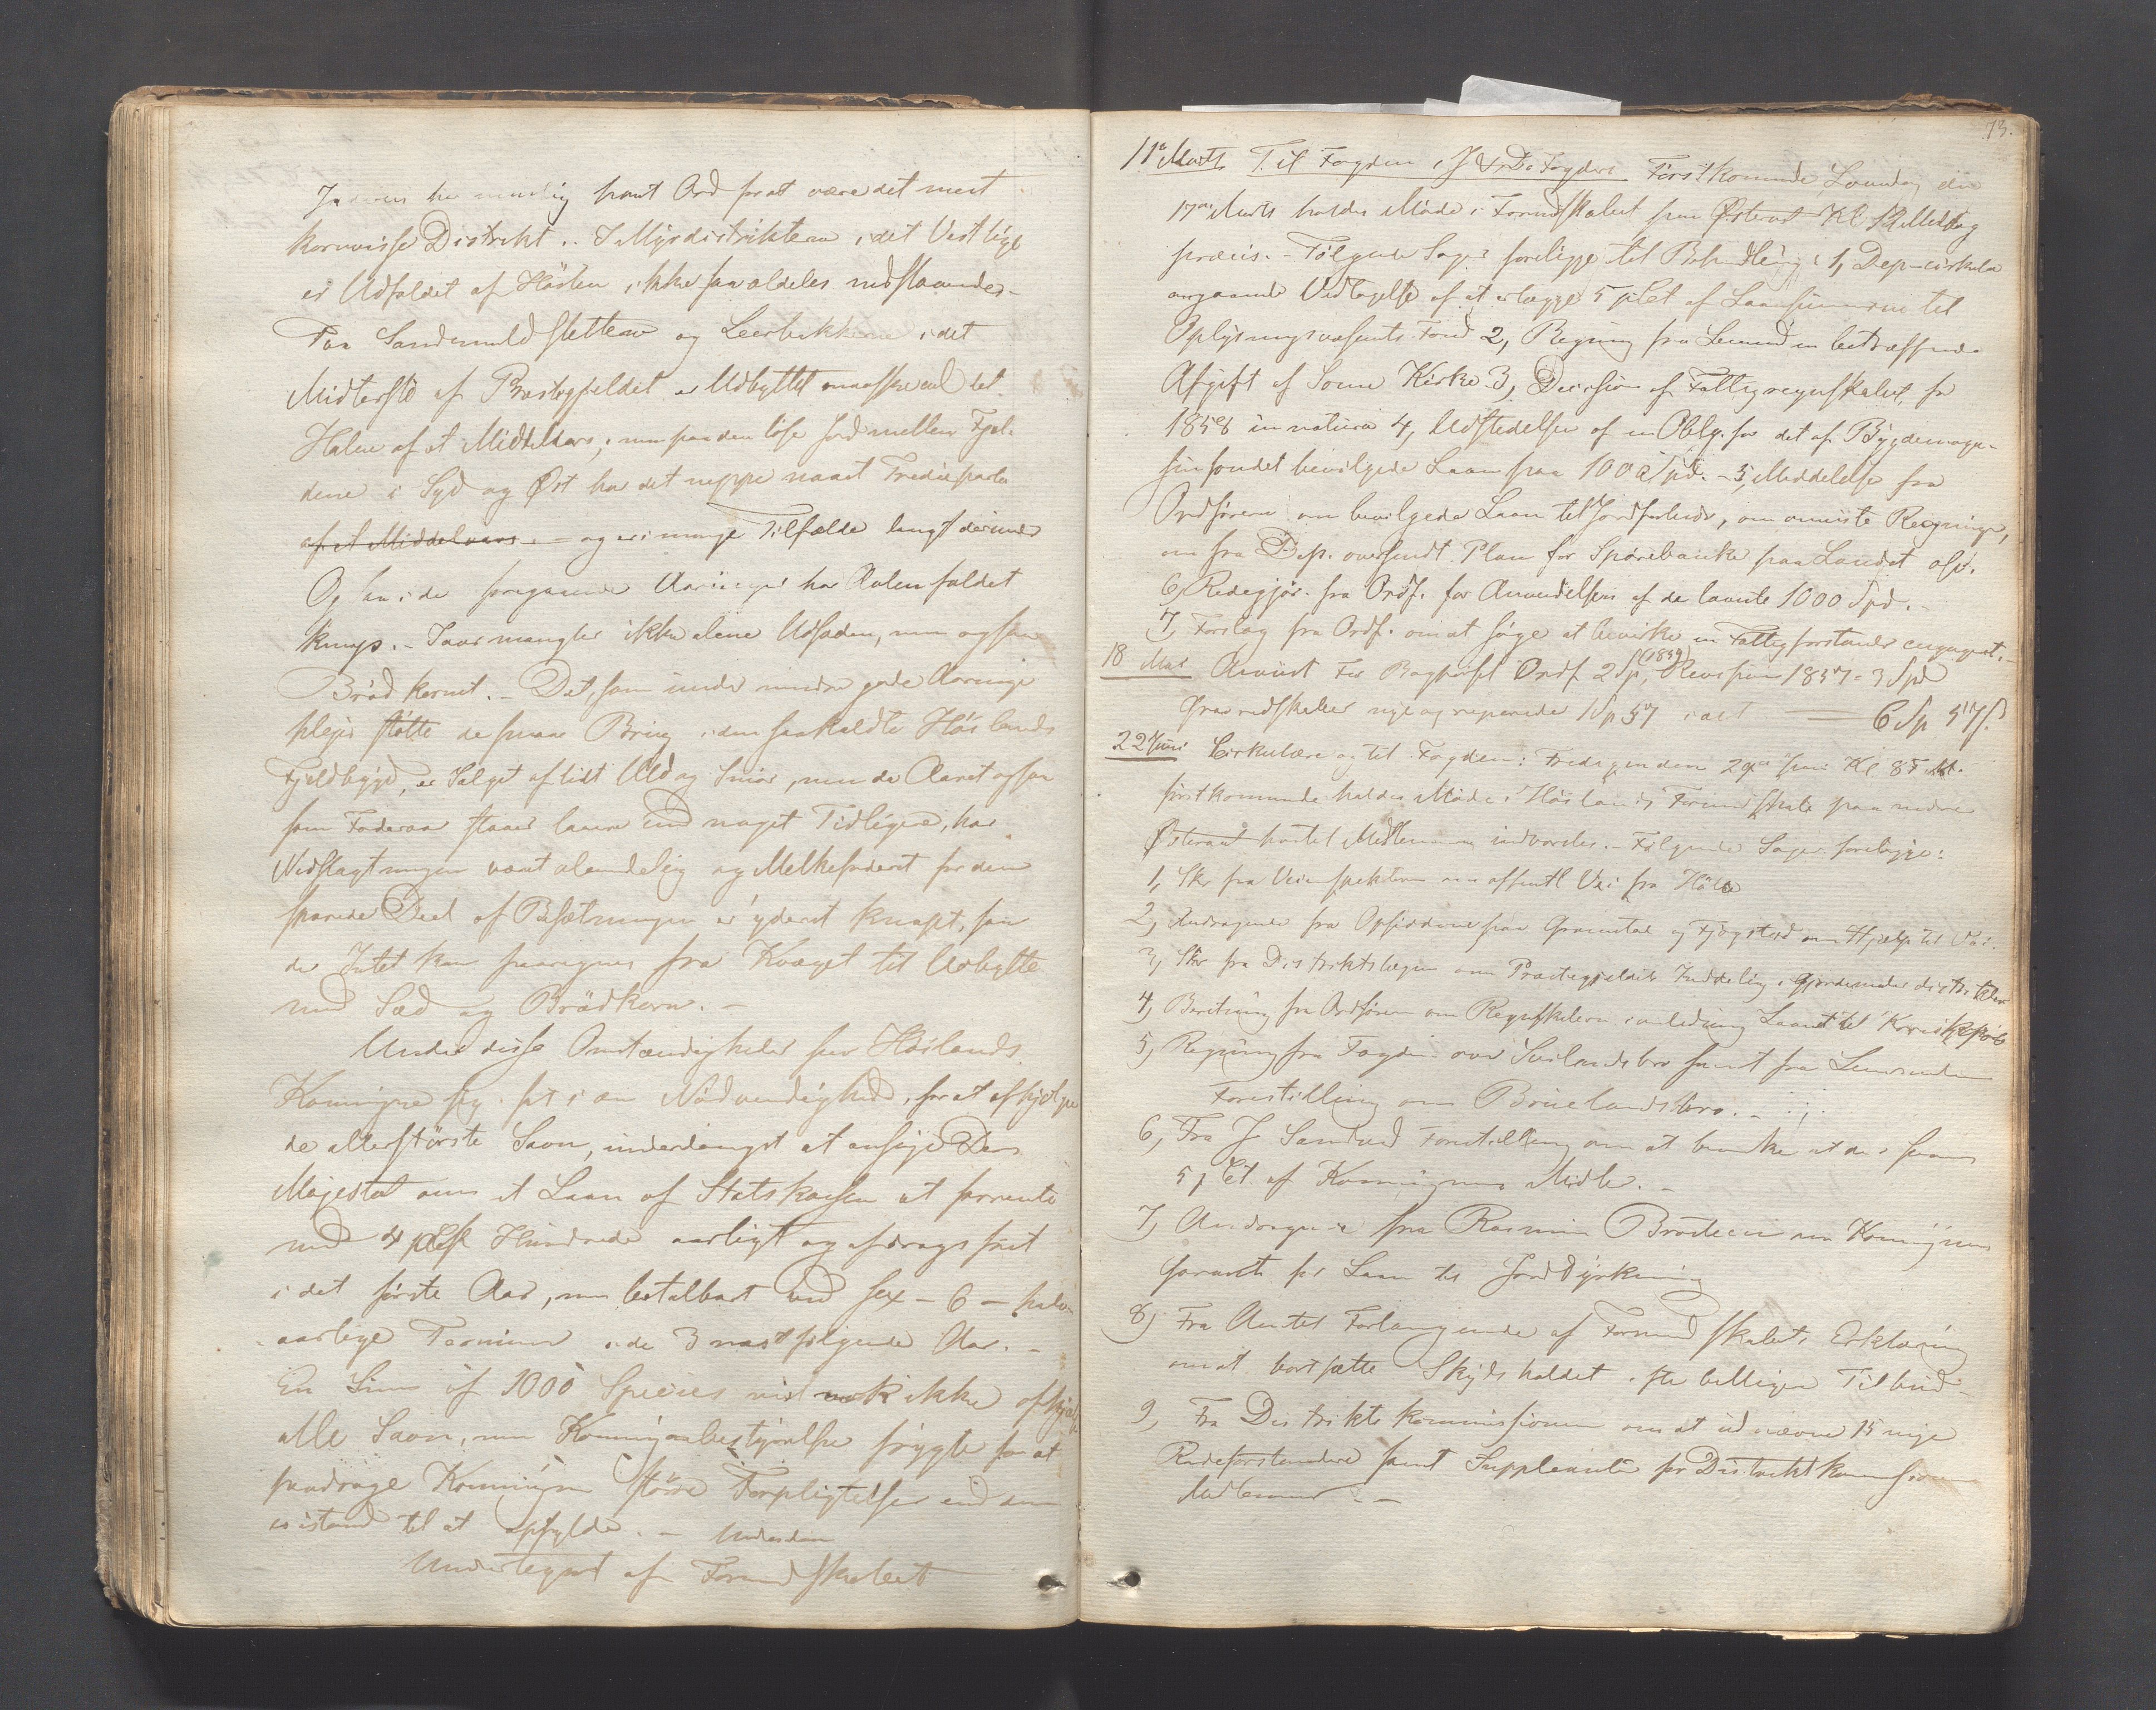 havt Ord for at være det mest
kornvisse Distrikt. I Myrdistrikterne i det Vestlige
er Udfaldet af Høsten ikke saa aldeles nedslaaende.
Paa Sandmuldsletterne og Leerbakkerne i det
Midterste af Præstegjeldet er Udbyttet maaskee vel det
Halve af et Middelaars, men paa den løse Jord mellem Fjel-
dene i Syd og Øst har det neppe naaet Tredieparten
af et Middelaars. - og er i mange Tilfælde langt derunder
Og i de foregaaende Aaringer har Avlen faldet
knap. - Saar mangler ikke alene Udsæden, men ogsaa
Brødkornet. - Det, som under mindre gode Aaringer
pleier støtte de smaae Brug i den saakaldte Høilands
Fjeldbygd, er Salget af lidt Uld og Smør, men da Aaret ogsaa
som Foderaar staaer lavere end noget Tidligere, har
Nedslagtningen været almindelig og Melkefoderet for den
sparede Deel af Besætningen er yderst knapt, saa
der Intet kan paaregnes fra Kvæget til Udbytte
med Sæd og Brødkorn. -
Under disse Omstændigheder seer Høilands
Kommune sig sat i den Nødvendighed, for at afhjelpe
de allerstørste Savn, underdanigst at ansøge Deres
Majestæt om et Laan af Statskassen at forrente
med 4 pCt Hundrede aarligt og afdragsfrit
i det første Aar, men betalbart ved sex - 6 - halv-
aarlige Terminer i de 3 næstfølgende Aar. -
En Sum af 1000 Species vil nok ikke afhjelpe
alle Savn, men Kommunebestyrelsen frygter for at
paadrage Kommunen større Forpligtelser end den
er istand til at opfylde. - Underdan
Undertegnet af Formandskabet
73.
11te Marts Til Fogden i J & D Fogderi Førstkomende Løverdag den
17de Marts holdes Møde i Formdskabet paa Østeraat Kl Middag
præcis. - Følgende Sager foreligge til Behandling: 1, Dep-cirkulære
angaaende Vedtagelse af at erlægge 5 pCet af Laansummerne til
Oplysningsvæsents Fond 2, Regning fra Lensmanden betræffende
Afgift af Soma Kirke 3, Decision af Fattigregnskabet for
1858 in natura 4, Udstedelsen af en Oblg. for det af Bygdemaga-
sinfondet bevilgede Laan paa 100 Spd. - 5, Meddelelse fra
Ordføreren om bevilgede Laan til Jordforbedr, om anviiste Regninger,
om fra Dep. oversendt Plan for Sparebanker paa Landet osv.
6, Redegjør. fra Ordf. for Anvendelsen af de laante 1000 Spd. -
7, Forslag fra Ordf. om at søge at bevirke en Fattigforstander engageret. -
18 Mai Anviist For Bagpapir Ordf 2 Sp, (1859) Revision 1857 = 3 Spd
Gravredskaber nye og reparerede 1 Sp 57 i alt — 6 Sp 57 s
22 Juni Cirkulære og til Fogden: Fredagen den 29de Juni Kl 8 F M.
førstkommende holdes Møde i Høilands Formandskab paa nedre
Østeraat hvortil Medlemmerne indvarsles. - Følgende Sager foreligge:
1, Skr fra Veiinspektøren om offentl Vei fra Høle
2, Andragende fra Opsidderne paa Gramstad og Fjogstad om Hjælp til Vei.
3, Skr fra Distriktslægen om Præstegjeldets Inddeling i Gjordemoderdistrikter
4, Beretning fra Ordføreren om Regnskaberne i anledning Laanet til Kornindkjøb
5, Regning fra Fogden over Svilandsbro samt fra Lensmanden
Forestilling om Bruelandsbro. -
6, Fra J Sandved Forestilling om at
5 pCt af Kommunens Midler. -
7, Andragende fra Rasmus Braateen om Kommunens
Garanti for Laan til Jorddyrkning
8, Fra Amtet Forlangende af Formandskabets Erklæring
om at bortsætte Skydsholdet efter billigere Tilbud -
9, Fra Distriktskommissionen om at udnævne 15 nye
Rodeforstandere samt Suppleanter for Distriktskommissionens
Medlemmer. -